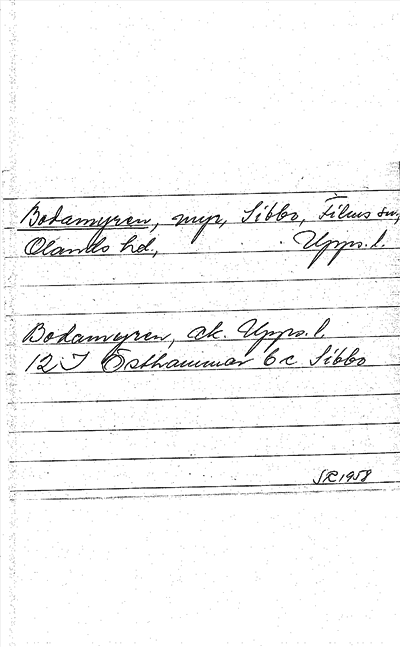 Bodamyren, myr, Sibbo, Films sn,
Olands hd, Upps. l.
Bodamyren, ek. Upps. l.
12 I Östhammar 6 c Sibbo
SR 1958